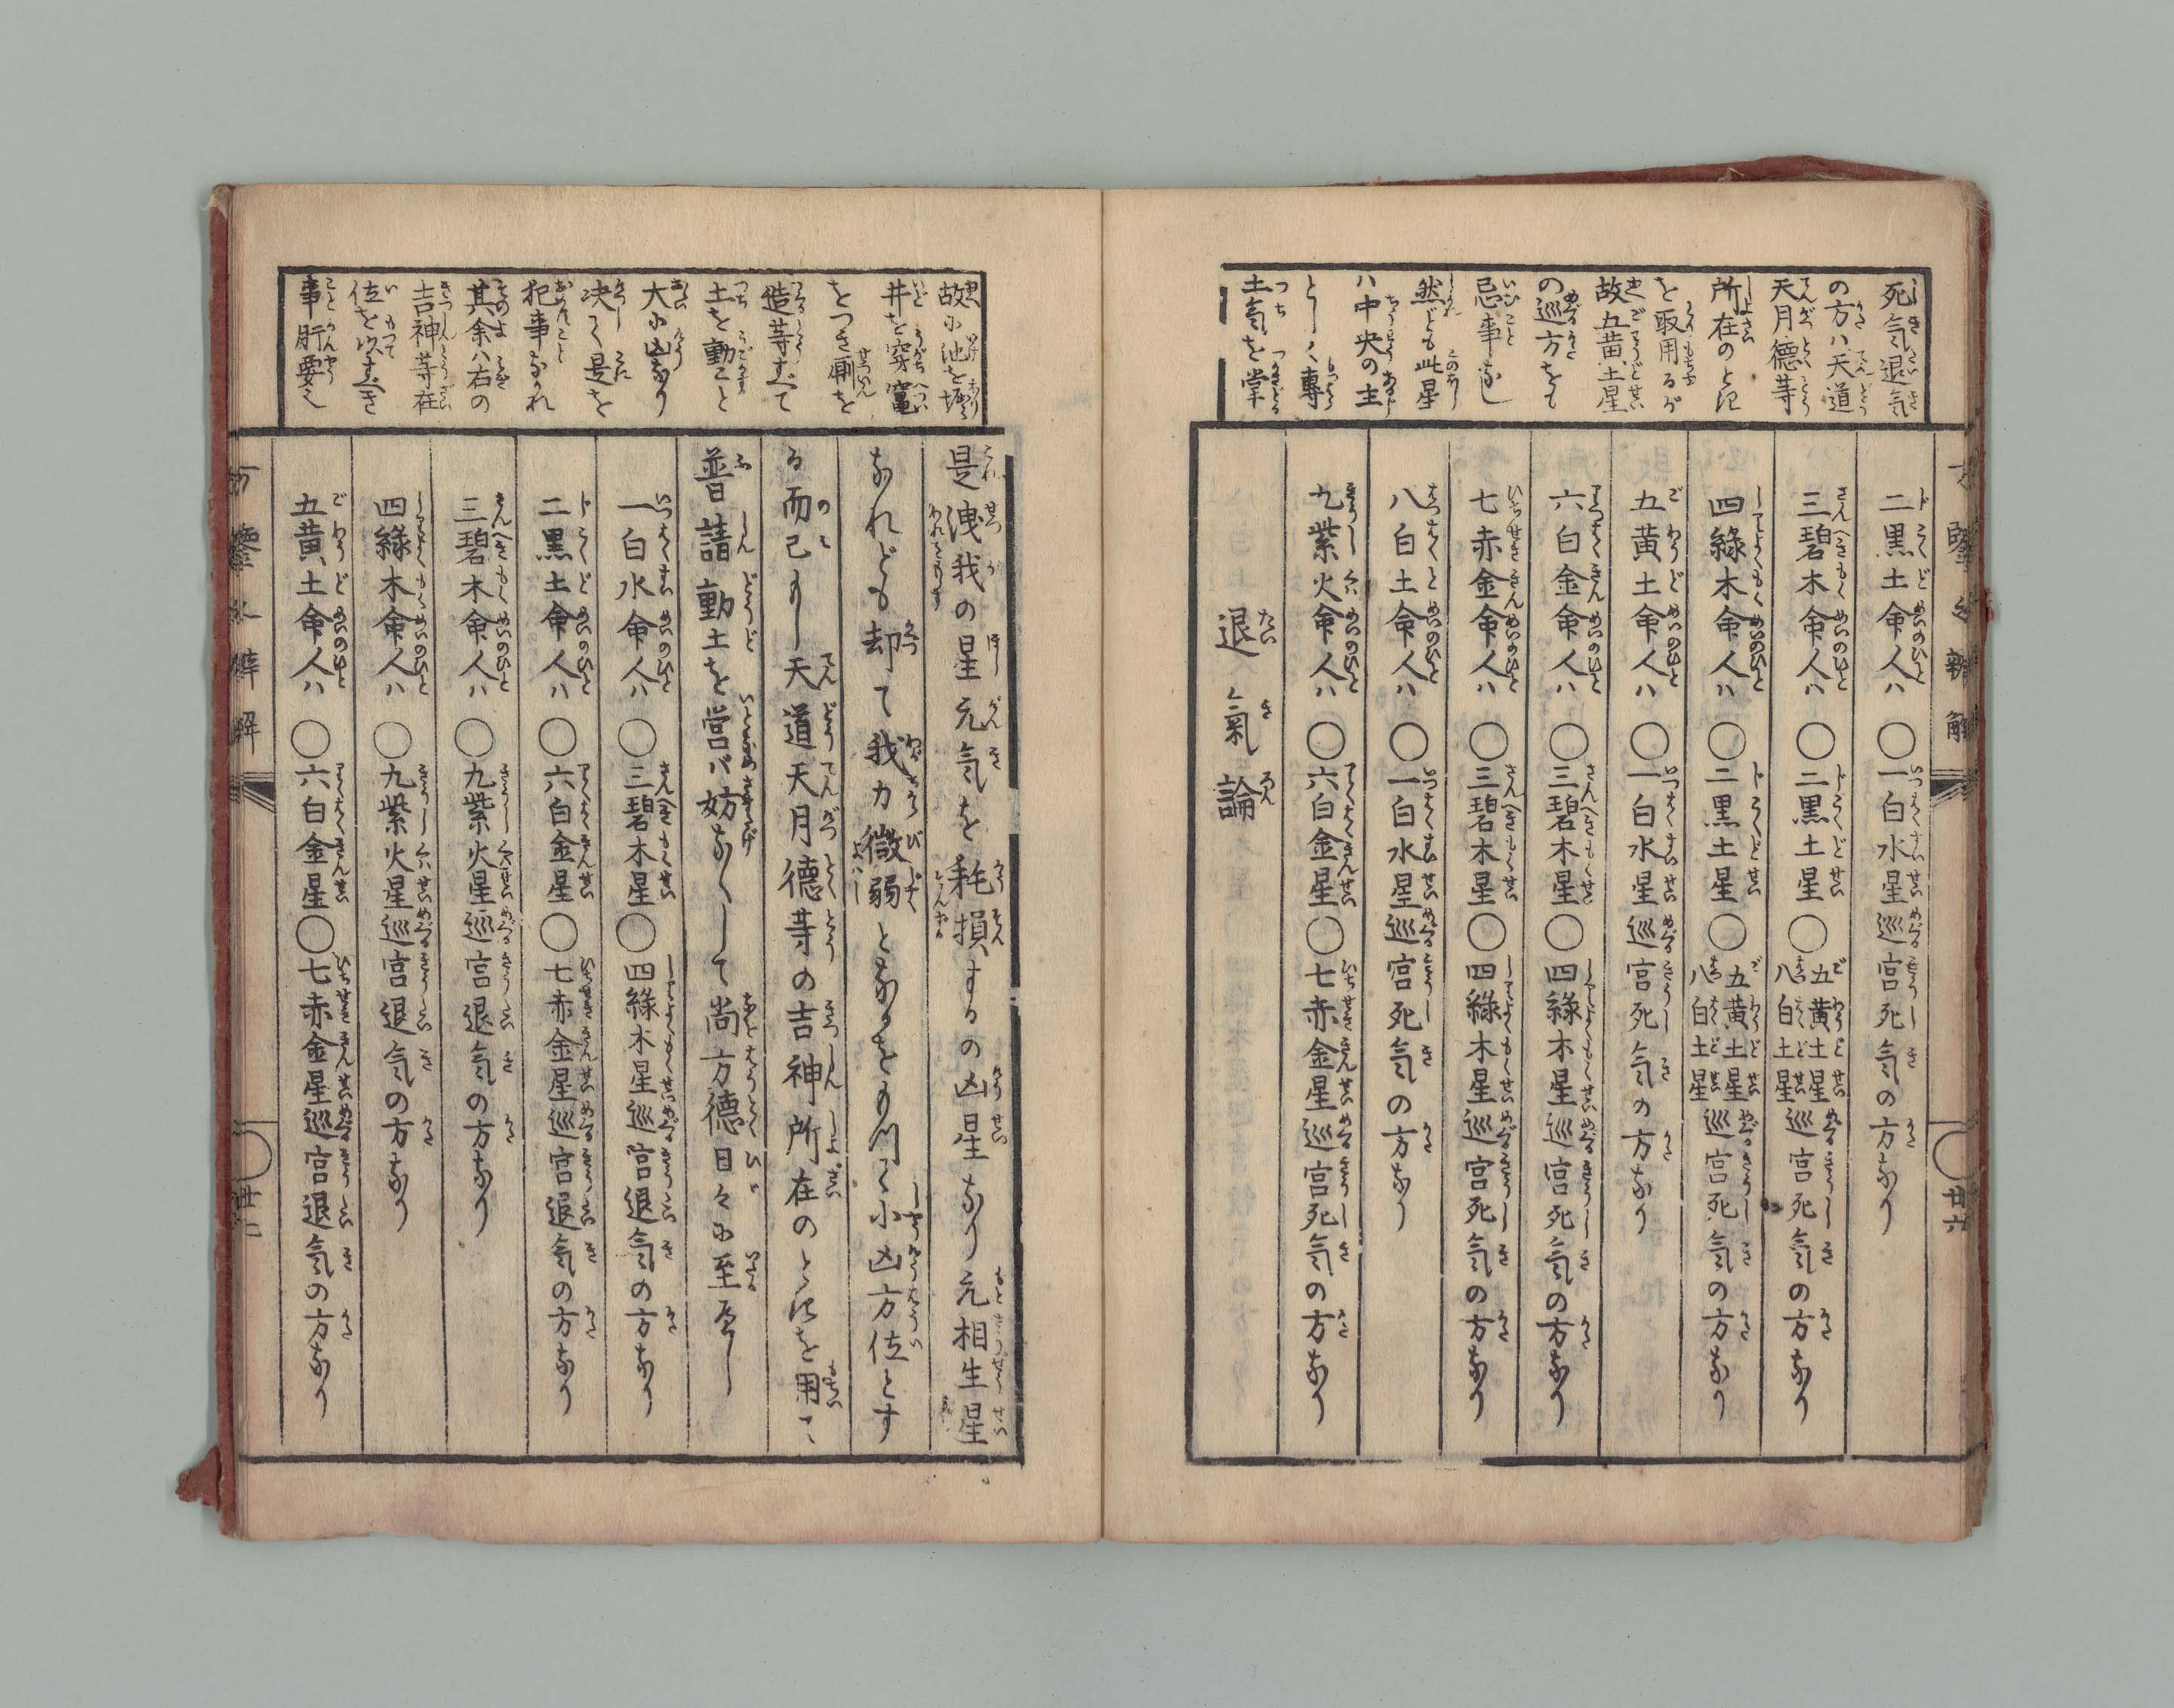 死気退気
の方ハ天道
天月德等
所在のとき
を取用るが
故五黄土星
の巡方をも
忌事なし
然ども此星
ハ中央の主
として專
土氣を掌
二黒土命人ハ〇一白水星巡宮死気の方なり
三碧木命人ハ〇二黒土星〇五黄土星八白土星巡宮死気の方なり
四綠木命人ハ〇二黒土星〇五黄土星八白土星巡宮死気の方なり
五黄土命人ハ〇一白水星巡宮死気の方なり
六白金命人ハ〇三碧木星〇四綠木星巡宮死気の方なり
七赤金命人ハ〇三碧木星〇四綠木星巡宮死気の方なり
八白土命人ハ〇一白水星巡宮死気の方なり
九紫火命人ハ〇六白金星〇七赤金星巡宮死気の方なり
退氣論
廿六
故に池を堀
井を穿竈
をつき厠を
造等すべて
土を動こと
大に凶なり
决て是を
犯事なかれ
其余ハ右の
吉神等在
位を以すべき
事肝要也
是洩我の星元気を耗損するの凶星なり元相生星
なれども却て我力微弱となるをもつて小凶方位とす
る而已なし天道天月德等の吉神所在のときを用て
普請動土を営バ妨なくして尚方德日々に至べし
一白水命人ハ〇三碧木星〇四綠木星巡宮退気の方なり
二黒土命人ハ〇六白金星〇七赤金星巡宮退気の方なり
三碧木命人ハ〇九紫火星巡宮退気の方なり
四綠木命人ハ〇九紫火星巡宮退気の方なり
五黄土命人ハ〇六白金星〇七赤金星巡宮退気の方なり